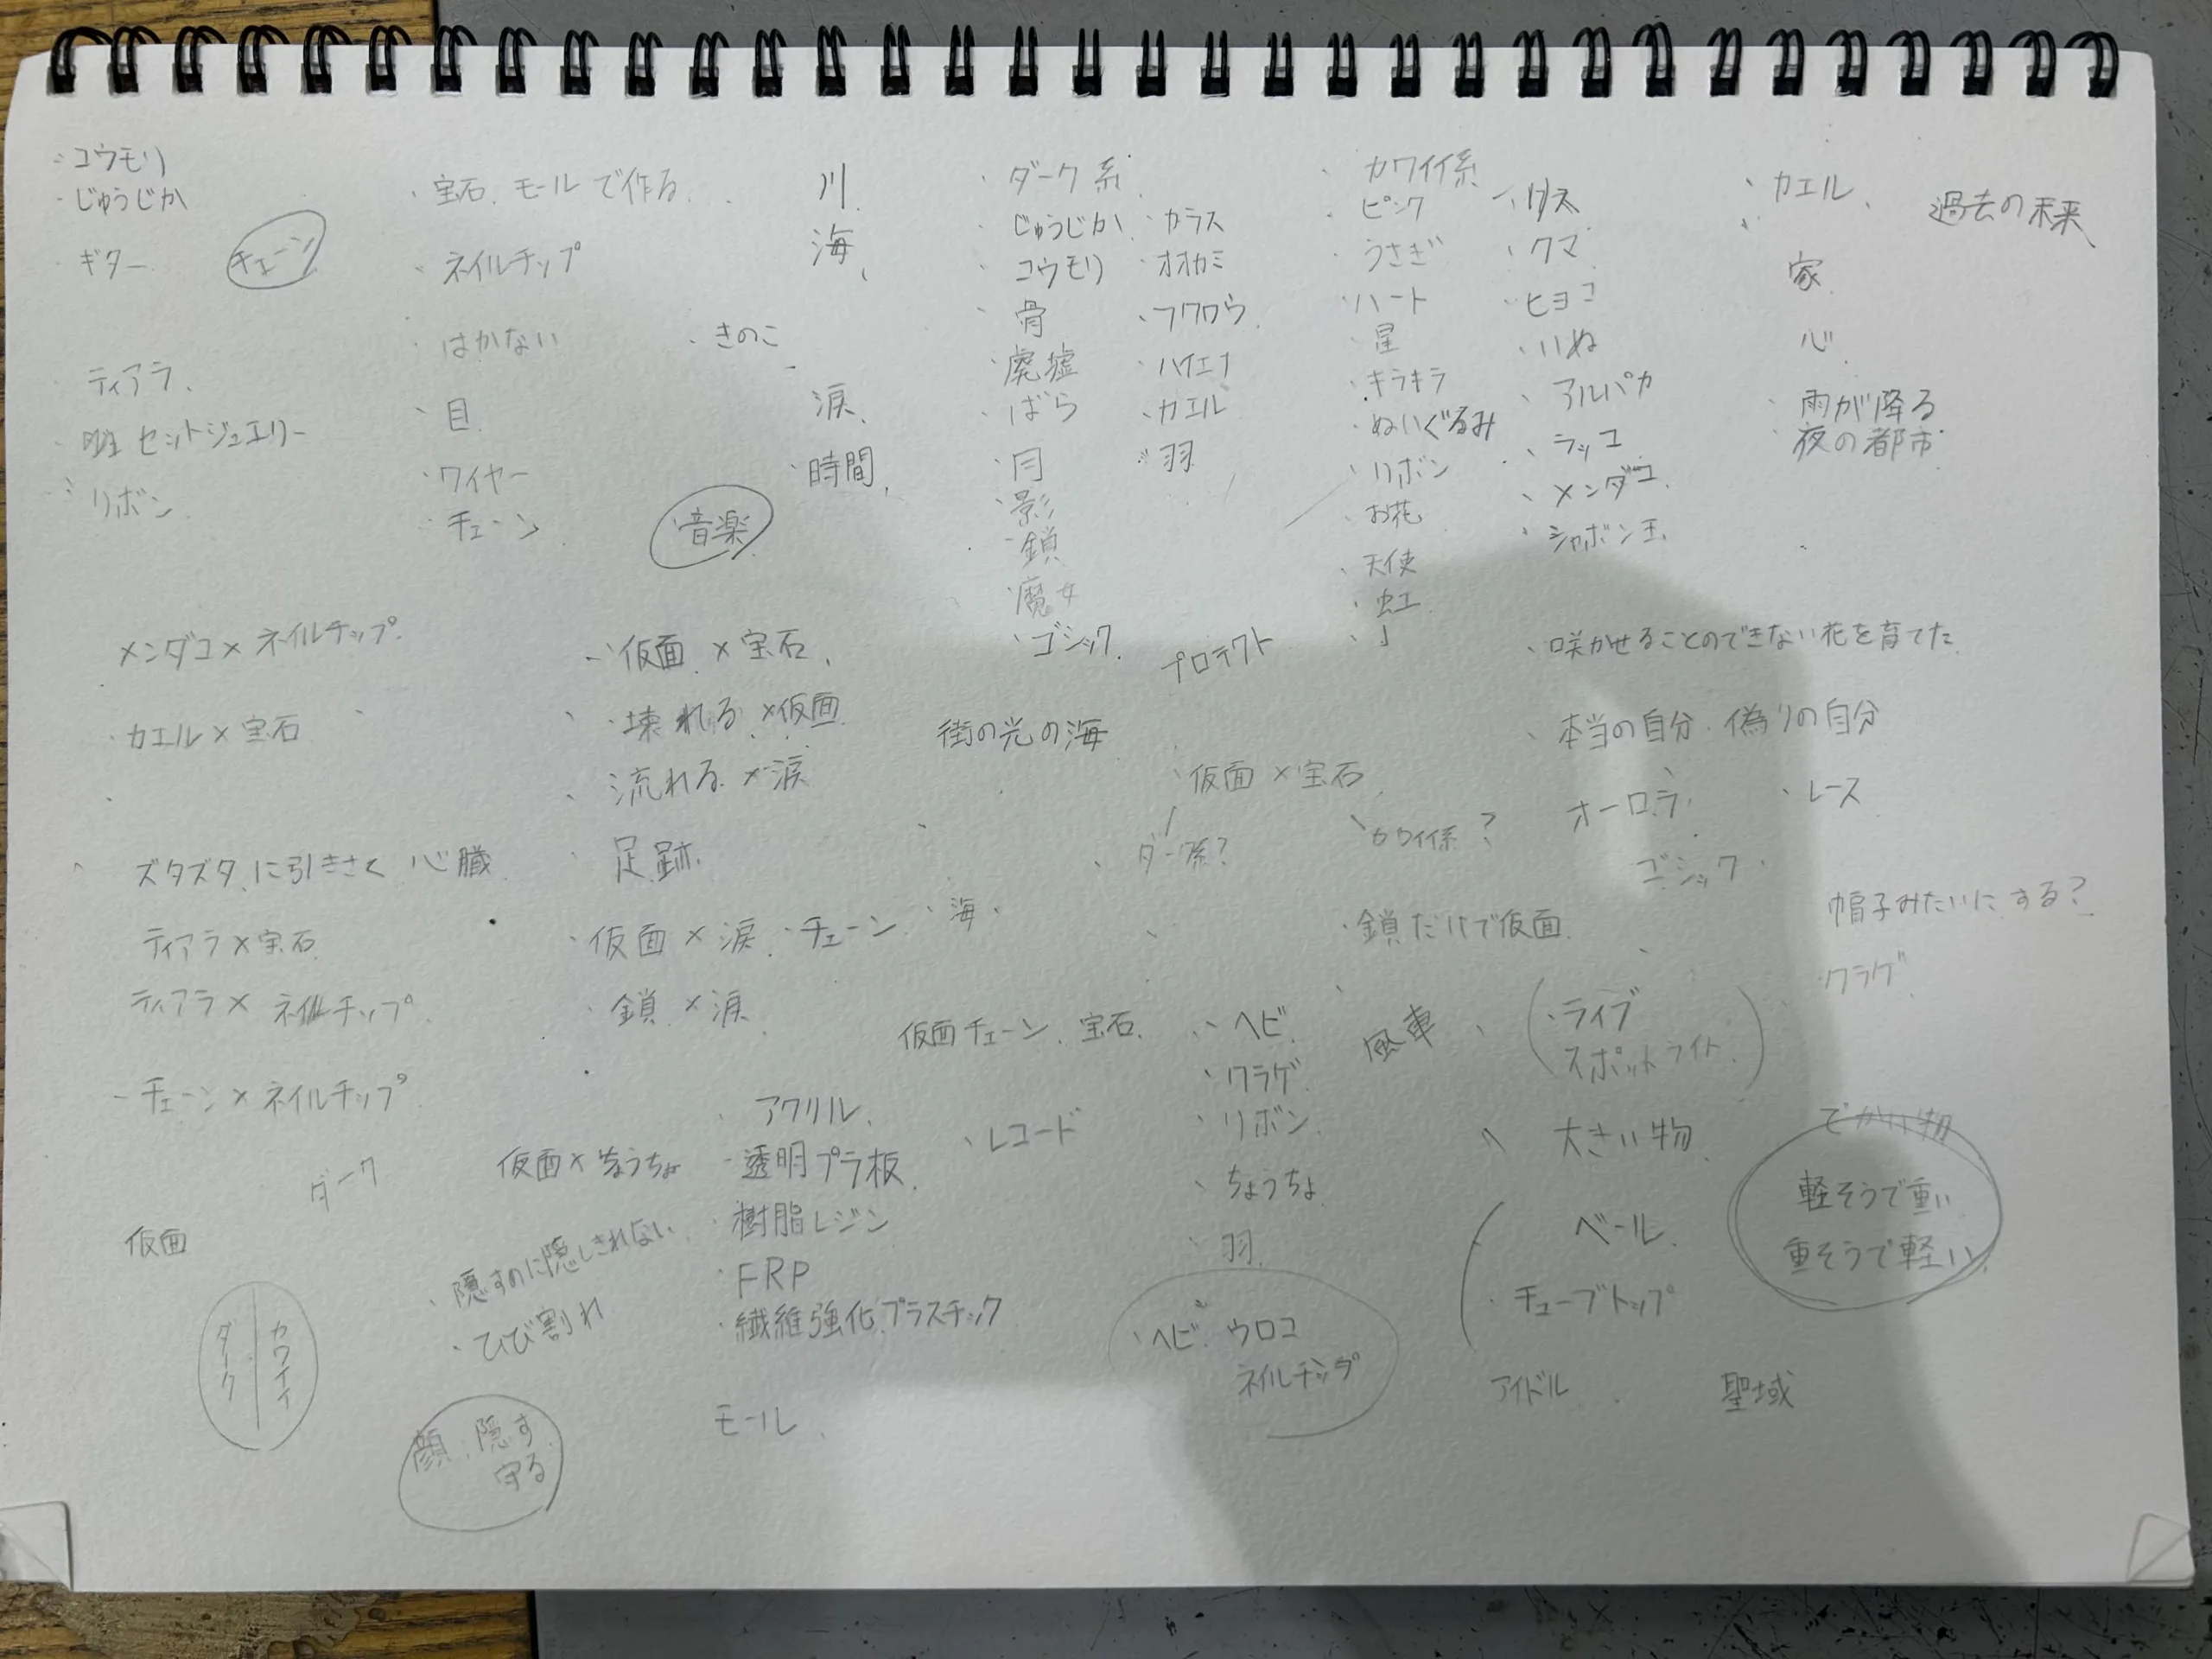 コウモリ
じゅうじか
ギター
チェーン
ティアラ、
セットジュエリー
リボン
宝石、モールで作る
ネイルチップ
はかない
目
ワイヤー
チェーン
きのこ
音楽
川
海、
涙、
時間、
ダーク系
じゅうじか
コウモリ
骨
廃墟
ばら
月
影
鎖
魔女
ゴシック
カラス
オオカミ
フクロウ
ハイエナ
カエル
羽
プロテクト
カワイイ系
ピンク
うさぎ
ハート
星
キラキラ
ぬいぐるみ
リボン
お花
天使
虹
クマ
ヒヨコ
いぬ
アルパカ
ラッコ
メンダコ
シャボン玉
カエル、
家
心
雨が降る
夜の都市
過去の未来
メンダコ×ネイルチップ
カエル×宝石
ズタズタに引きさく 心臓
ティアラ×宝石
ティアラ×ネイルチップ
チェーン×ネイルチップ
仮面×宝石、
壊れる×仮面
流れる×涙
足跡
仮面×涙、チェーン
海、
鎖×涙
街の光の海
仮面×宝石
ダーク系?
カワイイ系?
咲かせることのできない花を育てた
本当の自分、偽りの自分
オーロラ
レース
ゴシック
帽子みたいにする?
クラゲ
鎖だけで仮面
仮面チェーン、宝石
ヘビ
クラゲ
リボン
ちょうちょ
羽
風車
ライブ
スポットライト
大きい物
でかい物
軽そうで重い
重そうで軽い
ベール
チューブトップ
アイドル
聖域
ヘビ、ウロコ
ネイルチップ
レコード
アクリル、
透明プラ板
樹脂レジン
FRP
繊維強化プラスチック
モール
仮面×ちょうちょ
ダーク
仮面
ダーク
カワイイ
隠すのに隠しきれない
ひび割れ
顔、隠す
守る